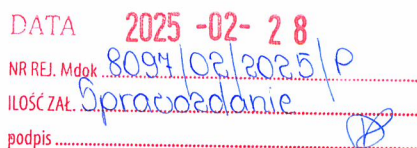 DATA 2025 -02- 28
NR REJ. Mdok 8097/02/2025/P
ILOŚĆ ZAŁ. Sprawozdanie
podpis